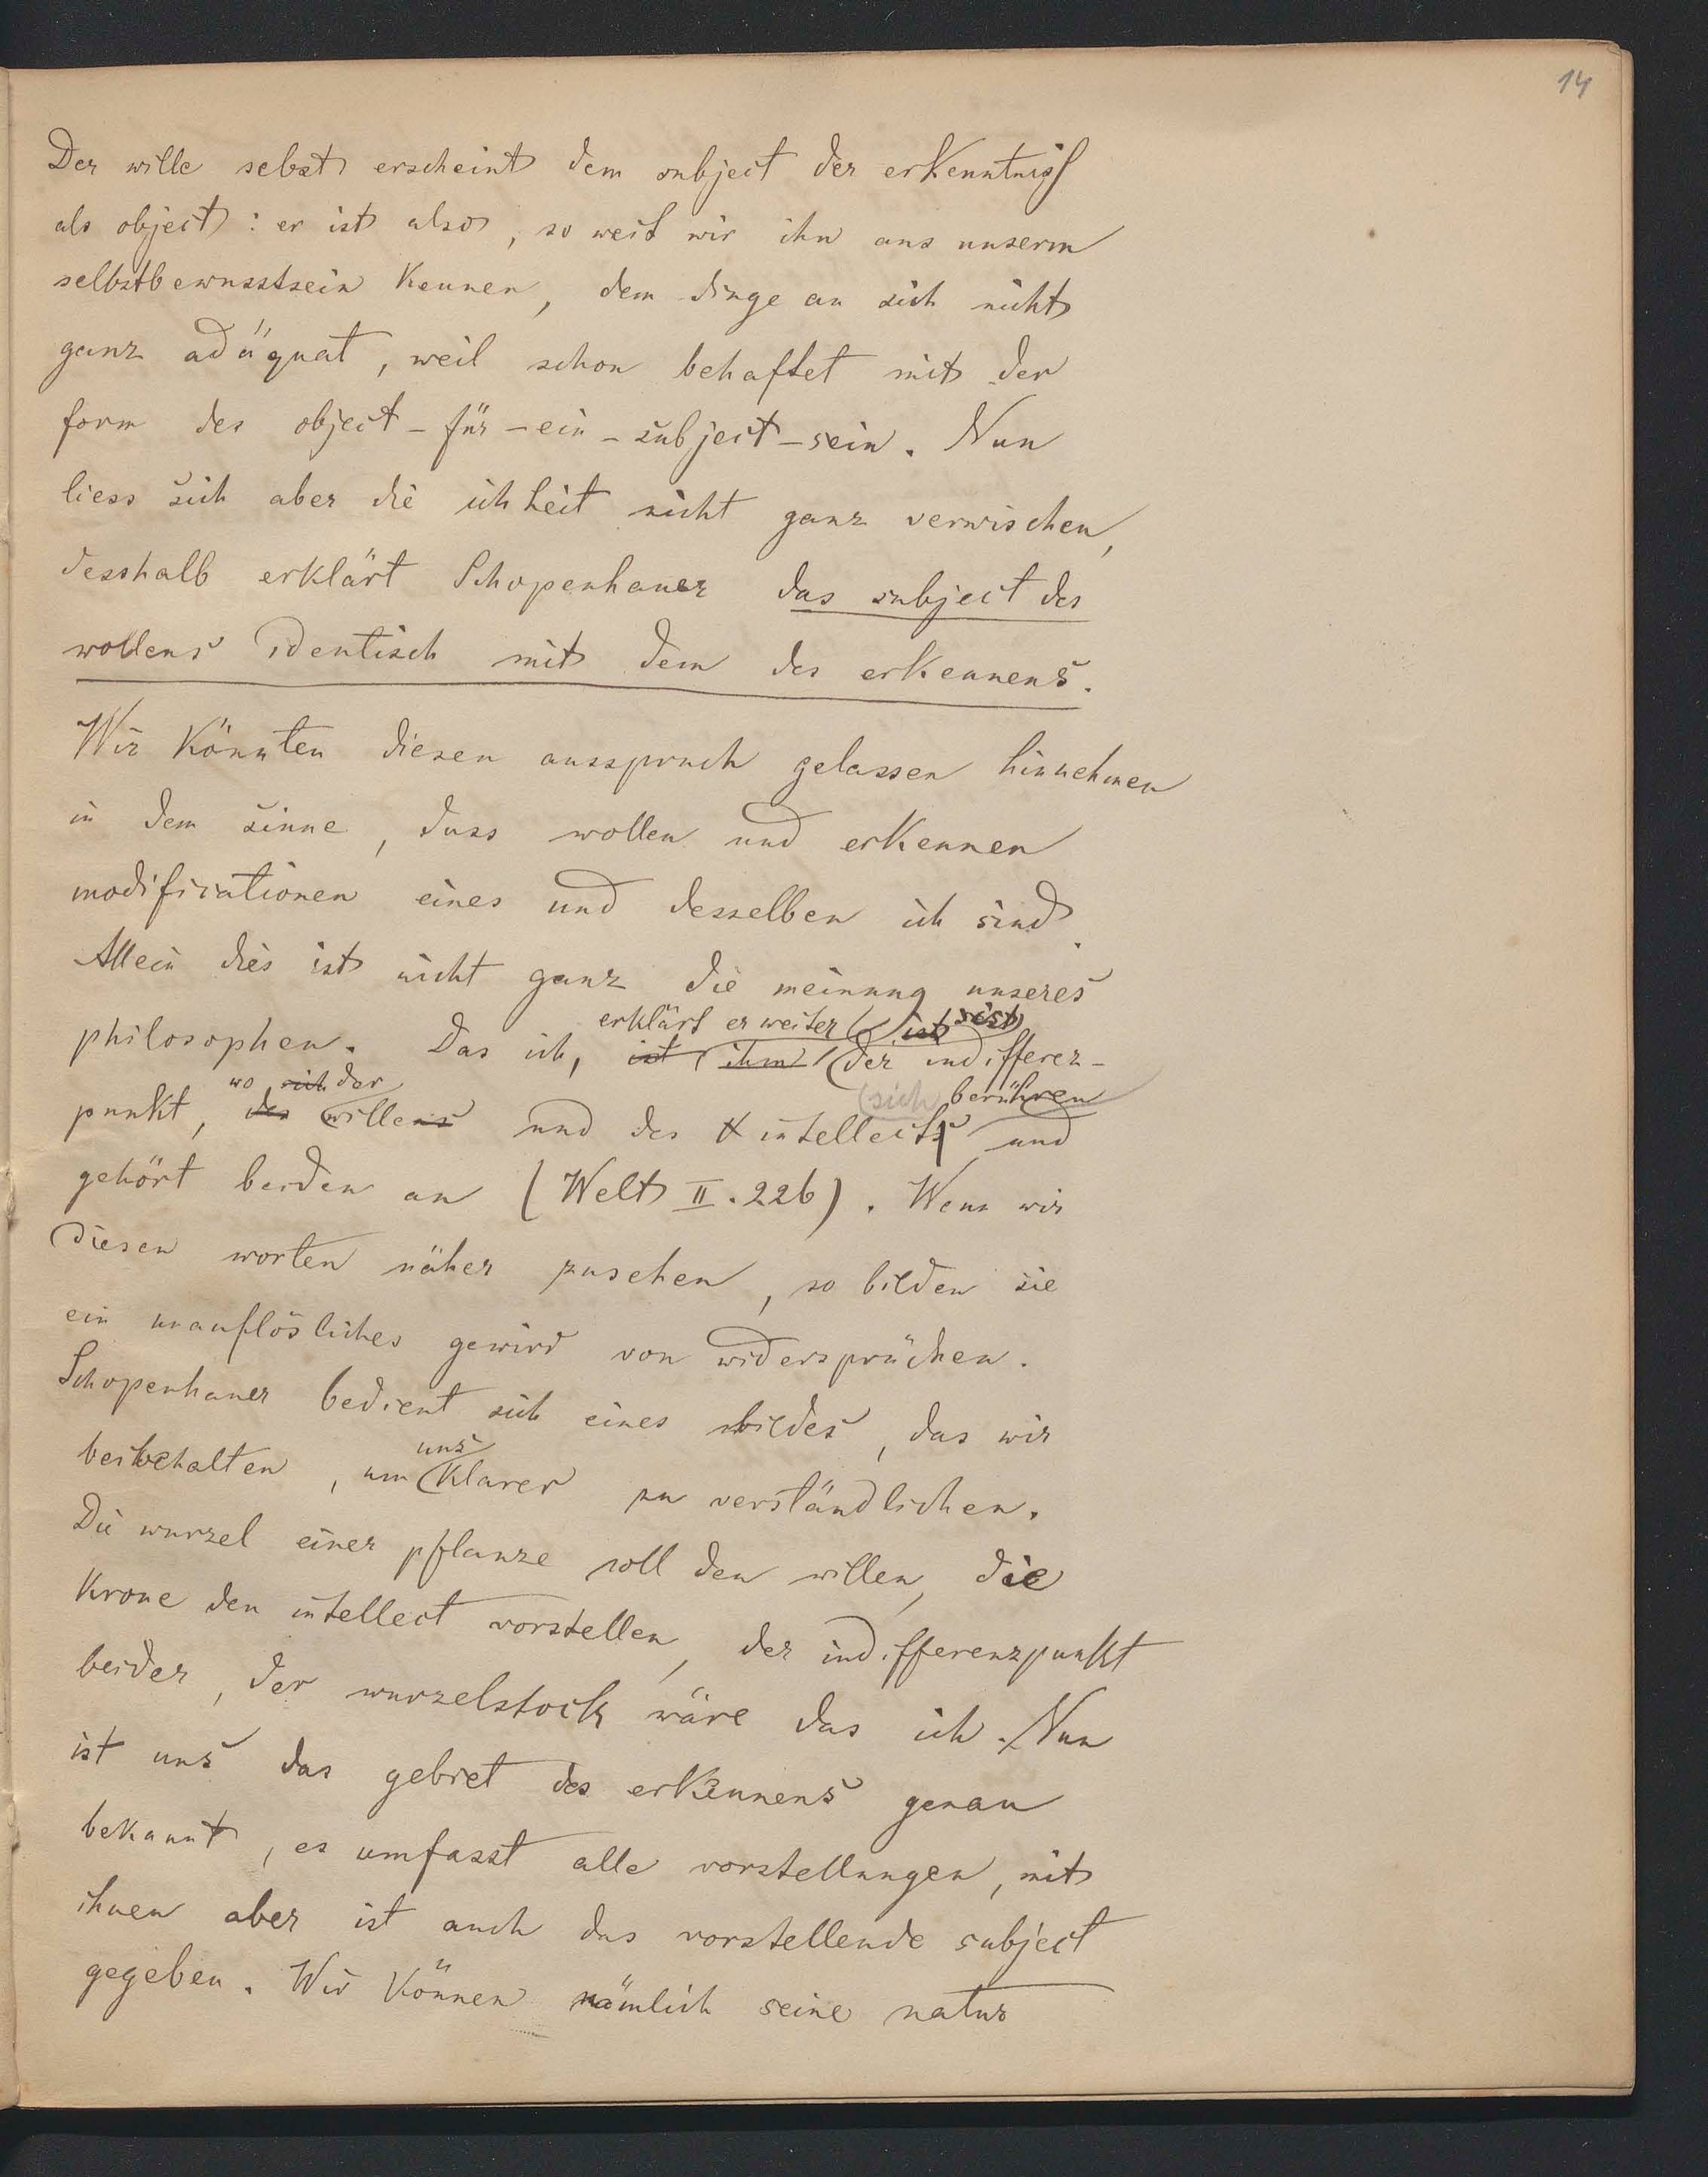 14
Der wille selbst erscheint dem subject der erkenntniß
als object: er ist also, so weit wir ihn aus unserm
selbstbewusstsein kennen, dem dinge an sich nicht
ganz adäquat, weil schon behaftet mit der
form des object-für-ein-subject-sein. Nun
liess sich aber die ichheit nicht ganz verwischen,
desshalb erklärt Schopenhauer das subject des
wollens identisch mit dem des erkennens.
Wir könnten diesen ausspruch gelassen hinnehmen
in dem sinne, dass wollen und erkennen
modificationen eines und desselben ich sind.
Allein dies ist nicht ganz die meinung unseres
erklärt er weiter ist ist
philosophen. Das ich, ist ihm der indifferenz-
wo sich der sich berühren
punkt, des willens und des intellects und
gehört beiden an (Welt II. 226). Wenn wir
diesen worten näher zusehen, so bilden sie
ein unauflösliches gewirr von widersprüchen.
Schopenhauer bedient sich eines bildes, das wir
uns
beibehalten, um klarer zu verständlichen.
Die wurzel einer pflanze soll den willen, die
Krone den intellect vorstellen, der indifferenzpunkt
beider, der wurzelstock wäre das ich. Nun
ist uns das gebiet des erkennens genau
bekannt, es umfasst alle vorstellungen, mit
ihnen aber ist auch das vorstellende subject
gegeben. Wir können nämlich seine natur